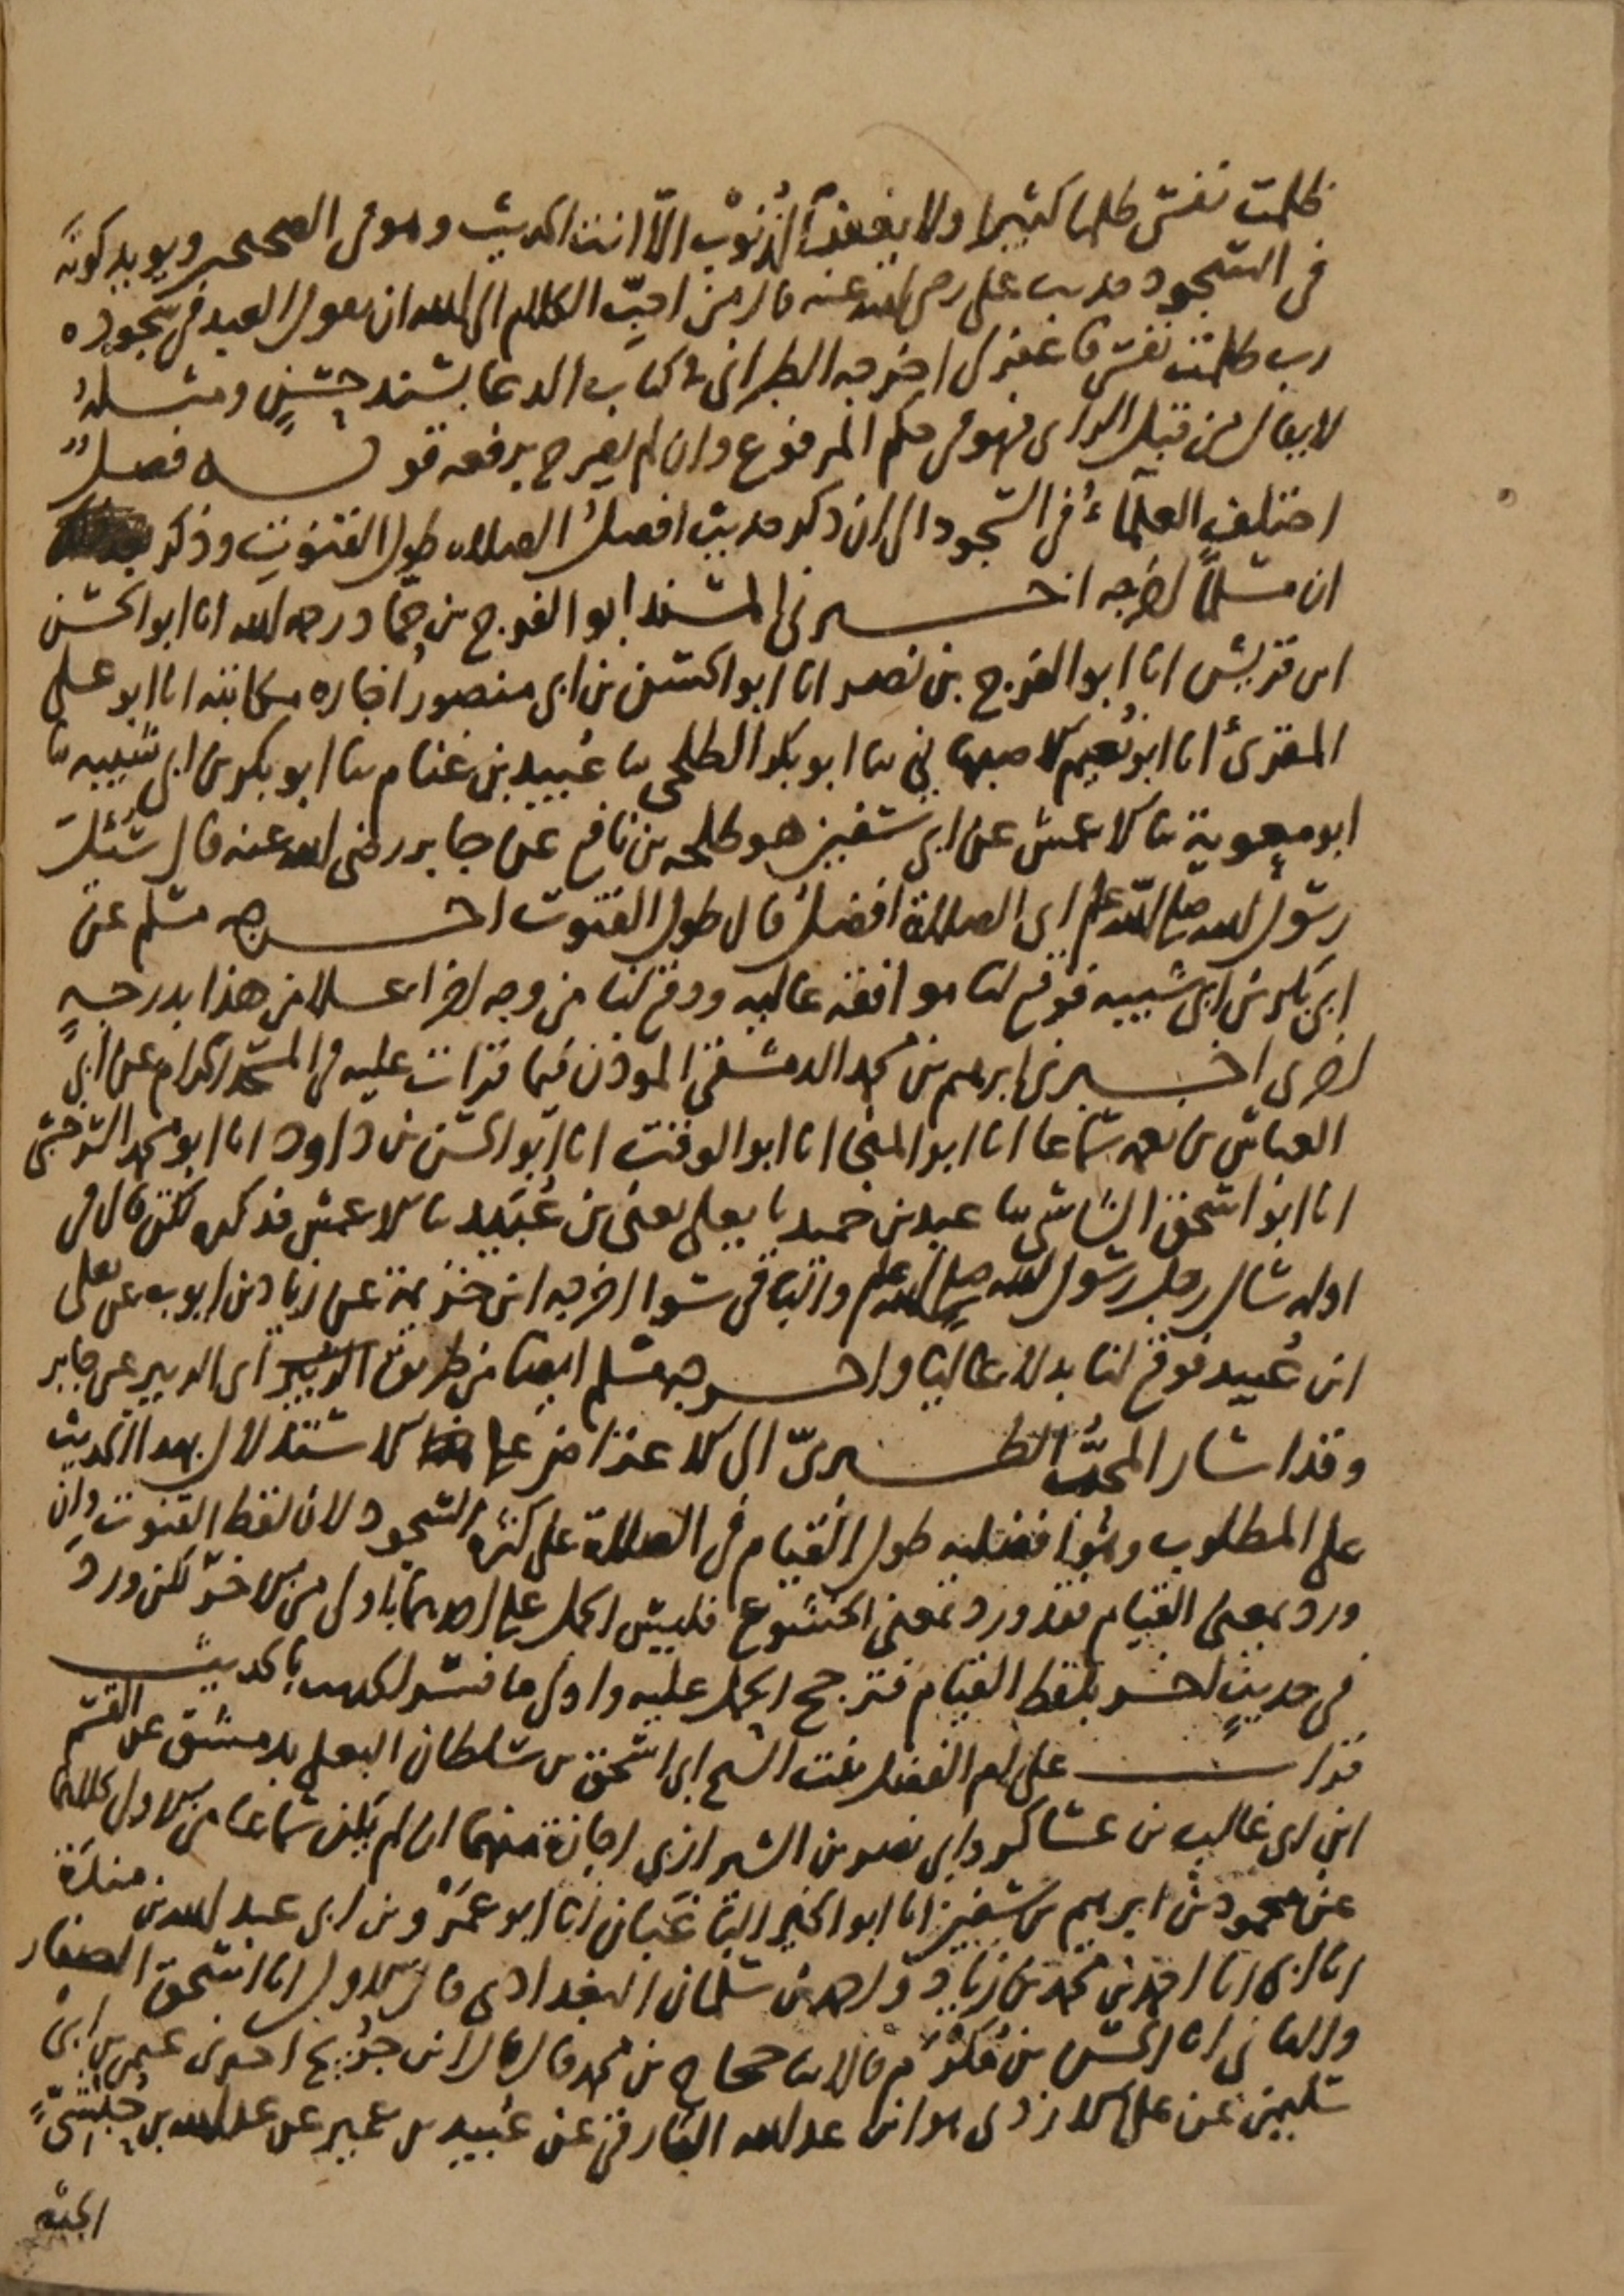 ظلمت نفسي ظلما كثيرا ولا يغفر الذنوب الا انت الحديث وهو في الصحيح ويويد كونه
في السجود حديث علي رضي الله عنه قال من احب الكلام الى الله ان يقول العبد في سجوده
رب ظلمت نفسي فاغفر لي اخرجه الطبراني في كتاب الدعا بسند حسن ومثله
لا يقال من قبل الراي فهو في حكم المرفوع وان لم يصرح برفعه قوله فصل
اختلف العلماء في السجود الى ان ذكر حديث افضل الصلاة طول القنوت وذكر
ان مسلما اخرجه اخبرني المسند ابو الفرج بن حماد رحمه الله انا ابو الحسن
ابن قريش انا ابو الفرج بن نصر انا ابو الحسن بن ابي منصور اجازه مكاتبه انا ابو علي
المقرئ انا ابو نعيم الاصبهاني ثنا ابو بكر الطلحي ثنا عبيد بن غنام ثنا ابو بكر بن ابي شيبه ثنا
ابو معوية ثنا الاعمش عن ابي سفين هو طلحه بن نافع عن جابر رضي الله عنه قال سئل
رسول الله صلى الله عليه وسلم اي الصلاة افضل قال طول القنوت اخرجه مسلم عن
ابي بكر بن ابي شيبه فوقع لنا موافقه عاليه ووقع لنا من وجه اخر اعلا من هذا بدرجة
اخرى اخبرني ابرهيم بن محمد الدمشقي الموذن فيما قرات عليه في المسجد الحرام عن ابي
العباس بن نعمه سماعا انا ابو المنجا انا ابو الوقت انا ابو الحسن بن داود انا ابو محمد السرخسي
انا ابو اسحق الشاشي ثنا عبد بن حميد ثنا يعلى يعني بن عبيد ثنا الاعمش فذكره لكن قال في
اوله سال رجل رسول الله صلى الله عليه وسلم والباقي سوا اخرجه ابن خزيمة عن زياد بن ايوب عن يعلى
ابن عبيد فوقع لنا بدلا عاليا واخرجه مسلم ايضا من طريق ابي الزبير عن جابر
وقد اشار المحب الطبري الى الاعتراض على الاستدلال بهذا الحديث
على المطلوب وهو افضليه طول القيام في الصلاة على كثرة السجود لان لفظ القنوت وان
ورد بمعنى القيام فقد ورد بمعنى الخشوع فليس الحمل على احدهما باولى من الاخر لكن ورد
في حديث اخر بلفظ القيام فترجح الحمل عليه واولى ما فسر الحديث بالحديث
قرات على ام الفضل بنت الشيخ ابي اسحق بن سلطان البعلي بدمشق عن القسم
ابن ابي غالب بن عساكر وابي نصر بن الشيرازي اجازة منهما ان لم يكن سماعا من الاول كلاهما
عن محمود بن ابرهيم بن سفين انا ابو الخير الباغبان انا ابو عمرو بن ابي عبد الله بن مندة
انا ابي انا احمد بن محمد بن زياد واحمد بن سلمان البغدادي قال الاول انا اسحق الصفار
والثاني انا الحسن بن مكرم قالا ثنا حجاج بن محمد قال قال ابن جريج اخبرني عثمن بن ابي
سليمن عن علي الازدي هو ابن عبد الله البارقي عن عبيد بن عمير عن عبد الله بن حبشي
الخثعمي